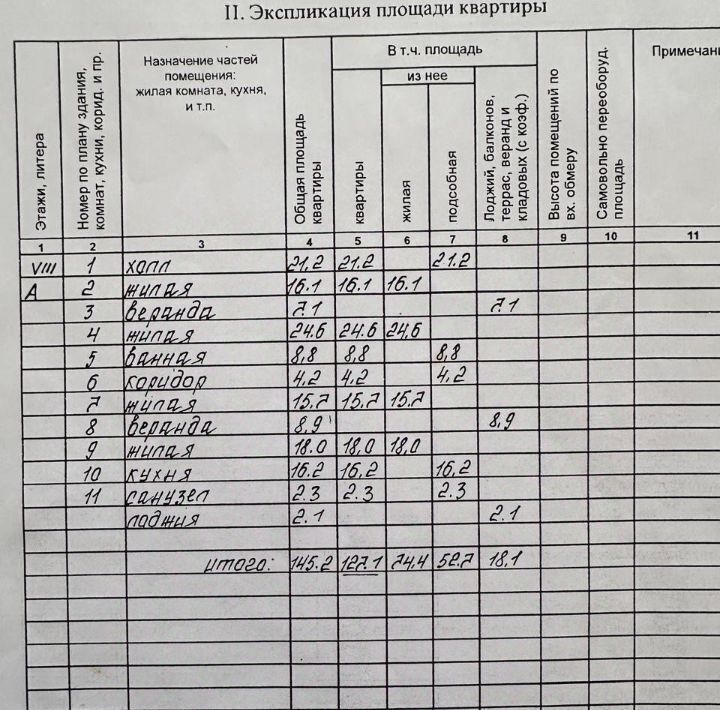 II. Экспликация площади квартиры
Этажи, литера
Номер по плану здания, комнат, кухни, корид. и пр.
Назначение частей помещения: жилая комната, кухня, и т.п.
Общая площадь квартиры
В т.ч. площадь
квартиры
из нее
жилая
подсобная
Лоджий, балконов, террас, веранд и кладовых (с коэф.)
Высота помещений по вх. обмеру
Самовольно переоборуд. площадь
Примечани
1 2 3 4 5 6 7 8 9 10 11
VIII 1 холл 21.2 21.2 21.2
А 2 жилая 16.1 16.1 16.1
3 веранда 7.1 7.1
4 жилая 24.6 24.6 24,6
5 ванная 8,8 8,8 8,8
6 коридор 4.2 4.2 4.2
7 жилая 15.7 15.7 15.7
8 веранда 8.9 8,9
9 жилая 18.0 18,0 18,0
10 кухня 16,2 16,2 16,2
11 санузел 2.3 2.3 2.3
лоджия 2.1 2.1
итого: 145.2 127.1 74,4 52.7 18,1